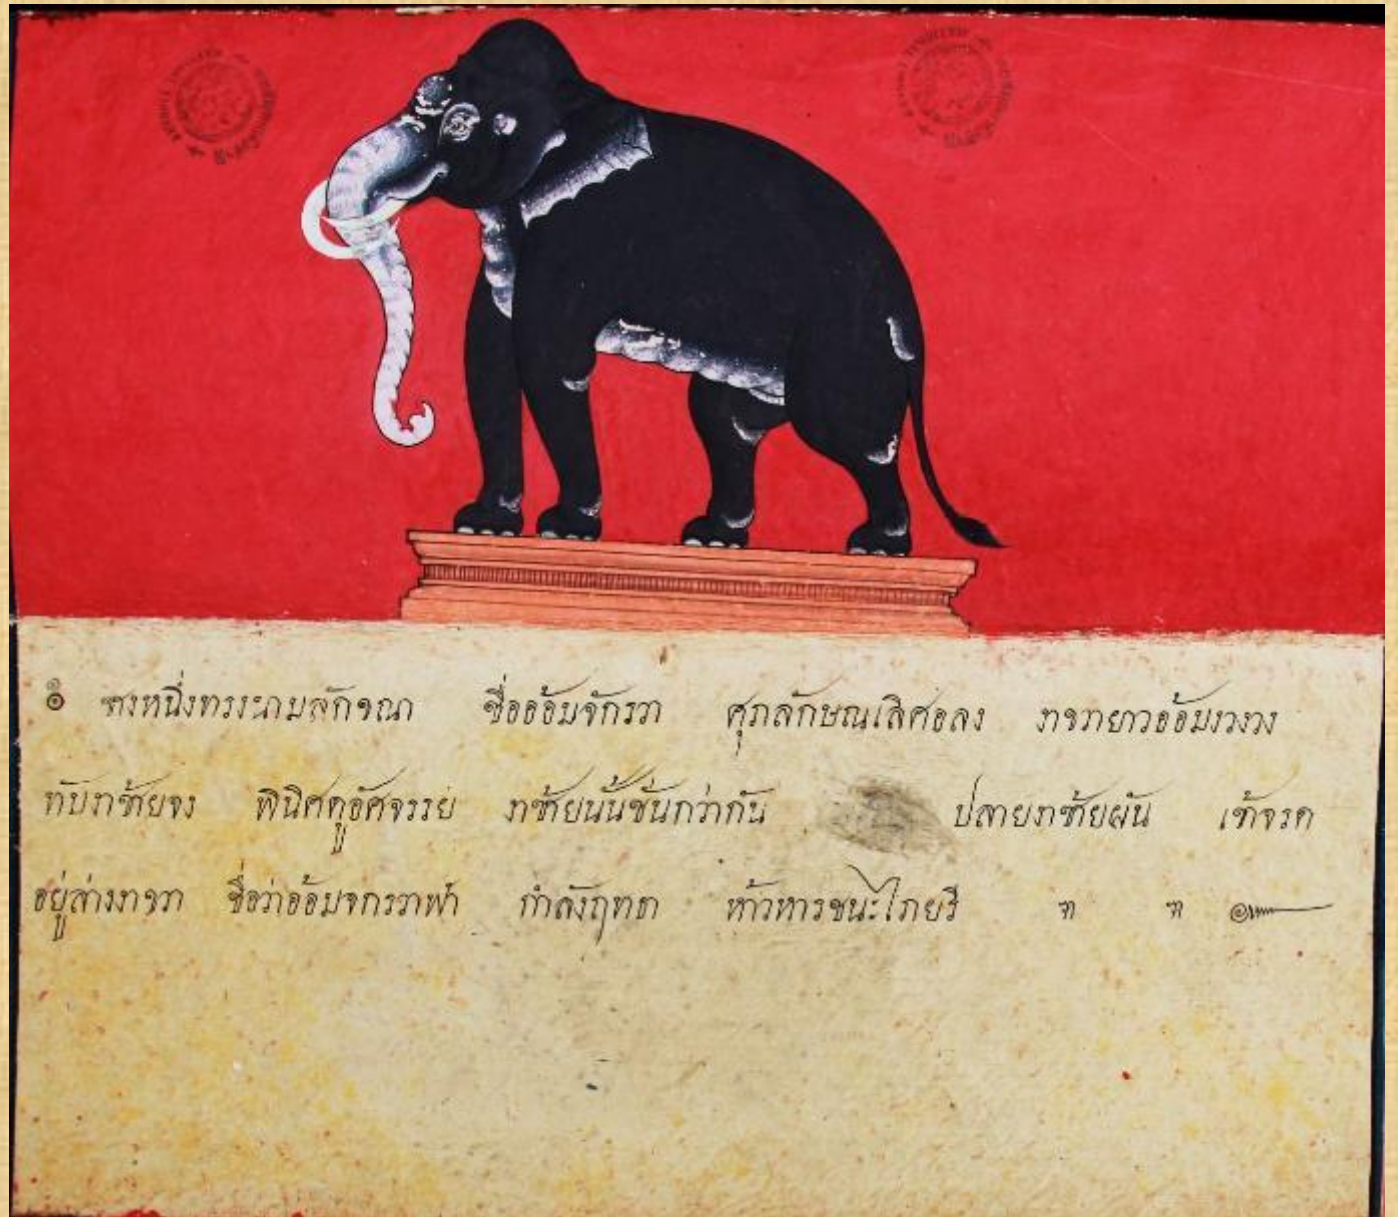 ๏ ชางหนึ่งทรงนามลักขณา ชื่ออ้อมจักรวา ศุภลักษณเลิศอลง งาขวายาวอ้อมงวงวง
ทับงาซ้ายจง พินิศดูอัศจรรย์ งาซ้ายนั้นชั้นกว่ากัน ปลายงาซ้ายผัน เข้าจรด
อยู่ล่างงาขวา ชื่อว่าอ้อมจกรวาฬา กำลังฤทธา ห้าวหารชนะไภยรี ฯ ฯ ๛